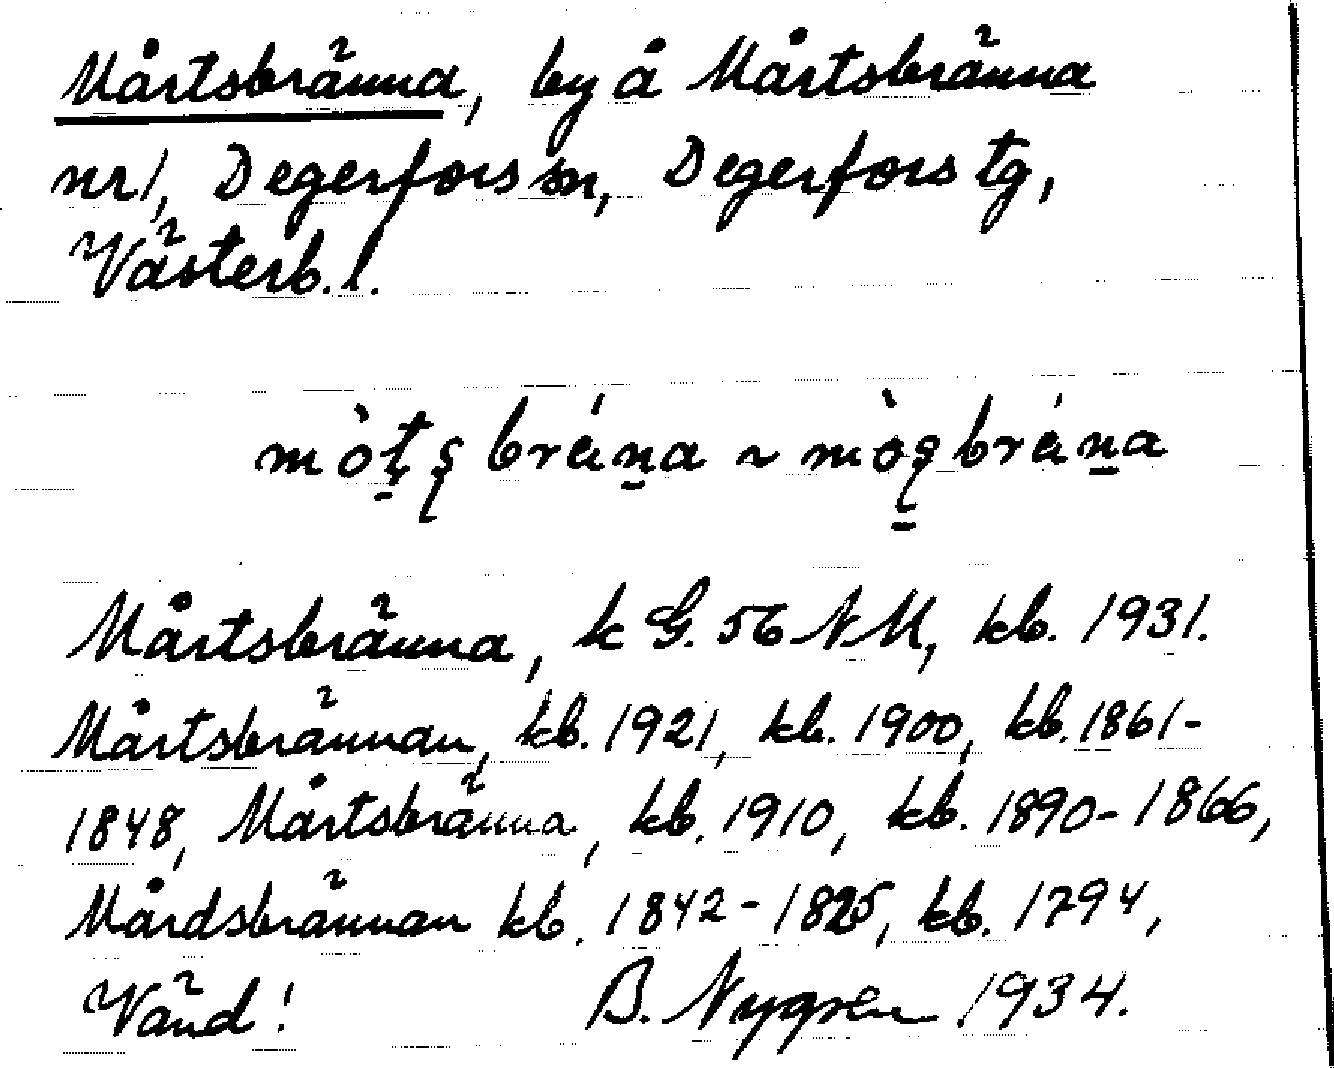 Mårtsbränna, by å Mårtsbränna
nr 1, Degerfors sn, Degerfors tg,
Västerb. l.
mòt̲ʂbréṉa ~ mòʂ̲bréṉa
Mårtsbränna, k G. 56 NM, kb. 1931.
Mårtsbrännan, kb. 1921, kb. 1900, kb. 1861-
1848, Mårtsbränna, kb. 1910, kb. 1890-1866,
Mårdsbrännan kb. 1842-1825, kb. 1794,
Vänd! B. Nygren 1934.